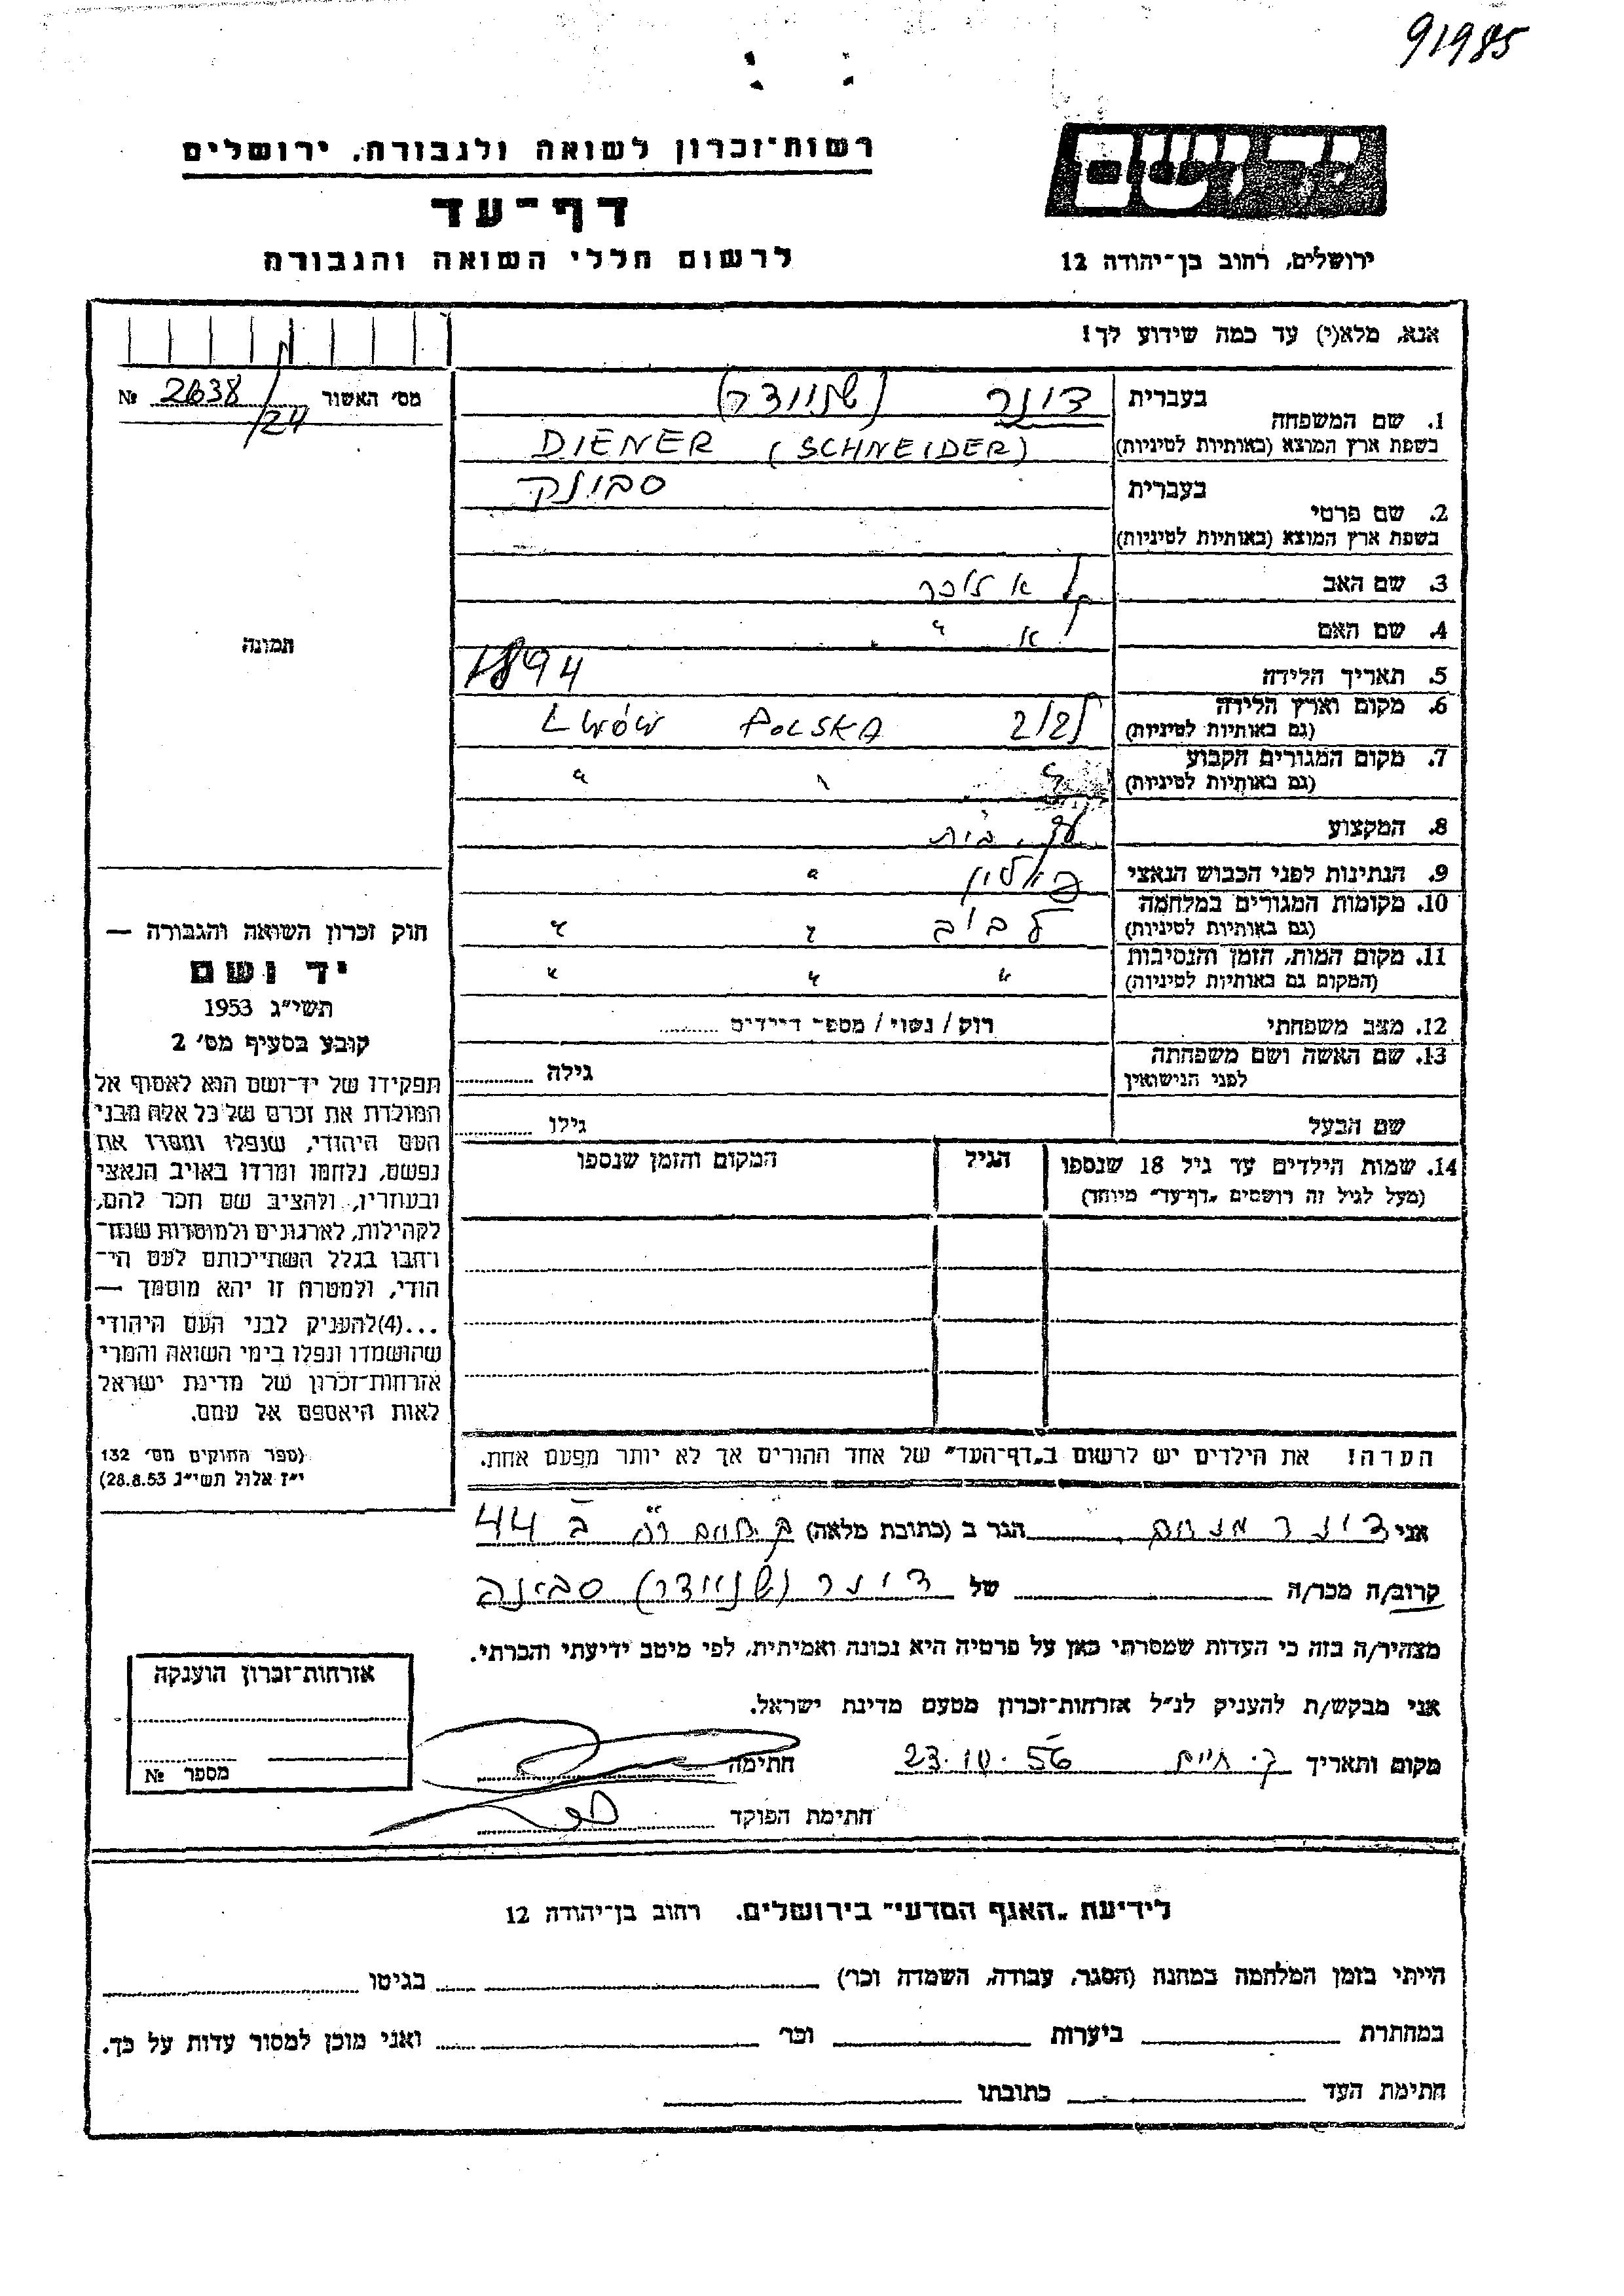 91985
יד ושם
רשות־זכרון לשואה ולגבורה, ירושלים
דף־עד
לרשום חללי השואה והגבורה
ירושלים, רחוב בן־יהודה 12
אנא, מלא(י) עד כמה שידוע לך!
מס׳ האשור 2638/24 №
1. שם המשפחה
בעברית דינר (שניידר)
בשפת ארץ המוצא (באותיות לטיניות) DIENER (SCHNEIDER)
2. שם פרטי
בעברית
בשפת ארץ המוצא (באותיות לטיניות)
3. שם האב לא זוכר
4. שם האם לא "
5. תאריך הלידה 1894
6. מקום וארץ הלידה
(גם באותיות לטיניות) LWÓW POLSKA
7. מקום המגורים הקבוע
(גם באותיות לטיניות) " " "
8. המקצוע עק. בית
9. הנתינות לפני הכבוש הנאצי פולין "
10. מקומות המגורים במלחמה
(גם באותיות לטיניות) לבוב " "
11. מקום המות, הזמן והנסיבות
(המקום גם באותיות לטיניות) " " "
12. מצב משפחתי רוק / נשוי / מספר הילדים ........
13. שם האשה ושם משפחתה
לפני הנישואין גילה
שם הבעל גילו
14. שמות הילדים עד גיל 18 שנספו
(מעל לגיל זה רושמים „דף־עד״ מיוחד)
הגיל
המקום והזמן שנספו
הערה! את הילדים יש לרשום ב„דף־העד״ של אחד ההורים אך לא יותר מפעם אחת.
תמונה
חוק זכרון השואה והגבורה —
יד ושם
תשי״ג 1953
קובע בסעיף מס׳ 2
תפקידו של יד־ושם הוא לאסוף אל
המולדת את זכרם של כל אלה מבני
העם היהודי, שנפלו ומסרו את
נפשם, נלחמו ומרדו באויב הנאצי
ובעוזריו, ולהציב שם וזכר להם,
לקהילות, לארגונים ולמוסדות שנח־
רבו בגלל השתייכותם לעם הי־
הודי, ולמטרה זו יהא מוסמך —
...(4) להעניק לבני העם היהודי
שהושמדו ונפלו בימי השואה והמרי
אזרחות־זכרון של מדינת ישראל
לאות היאספם אל עמם.
(ספר החוקים מס׳ 132
י״ז אלול תשי״ג 28.8.53)
אני דינר מנחם הגר ב (כתובת מלאה) ב 44
קרוב/ה מכר/ה של דינר (שניידר) סבינה
מצהיר/ה בזה כי העדות שמסרתי כאן על פרטיה היא נכונה ואמיתית, לפי מיטב ידיעתי והכרתי.
אני מבקש/ת להעניק לנ״ל אזרחות־זכרון מטעם מדינת ישראל.
מקום ותאריך ק. חיים 23.10.56 חתימה
חתימת הפוקד
אזרחות־זכרון הוענקה
מספר №
לידיעת „האגף המדעי״ בירושלים. רחוב בן־יהודה 12
הייתי בזמן המלחמה במחנה (הסגר, עבודה, השמדה וכו׳) בגיטו
במחתרת ביערות וכו׳ ואני מוכן למסור עדות על כך.
חתימת העד כתובתו